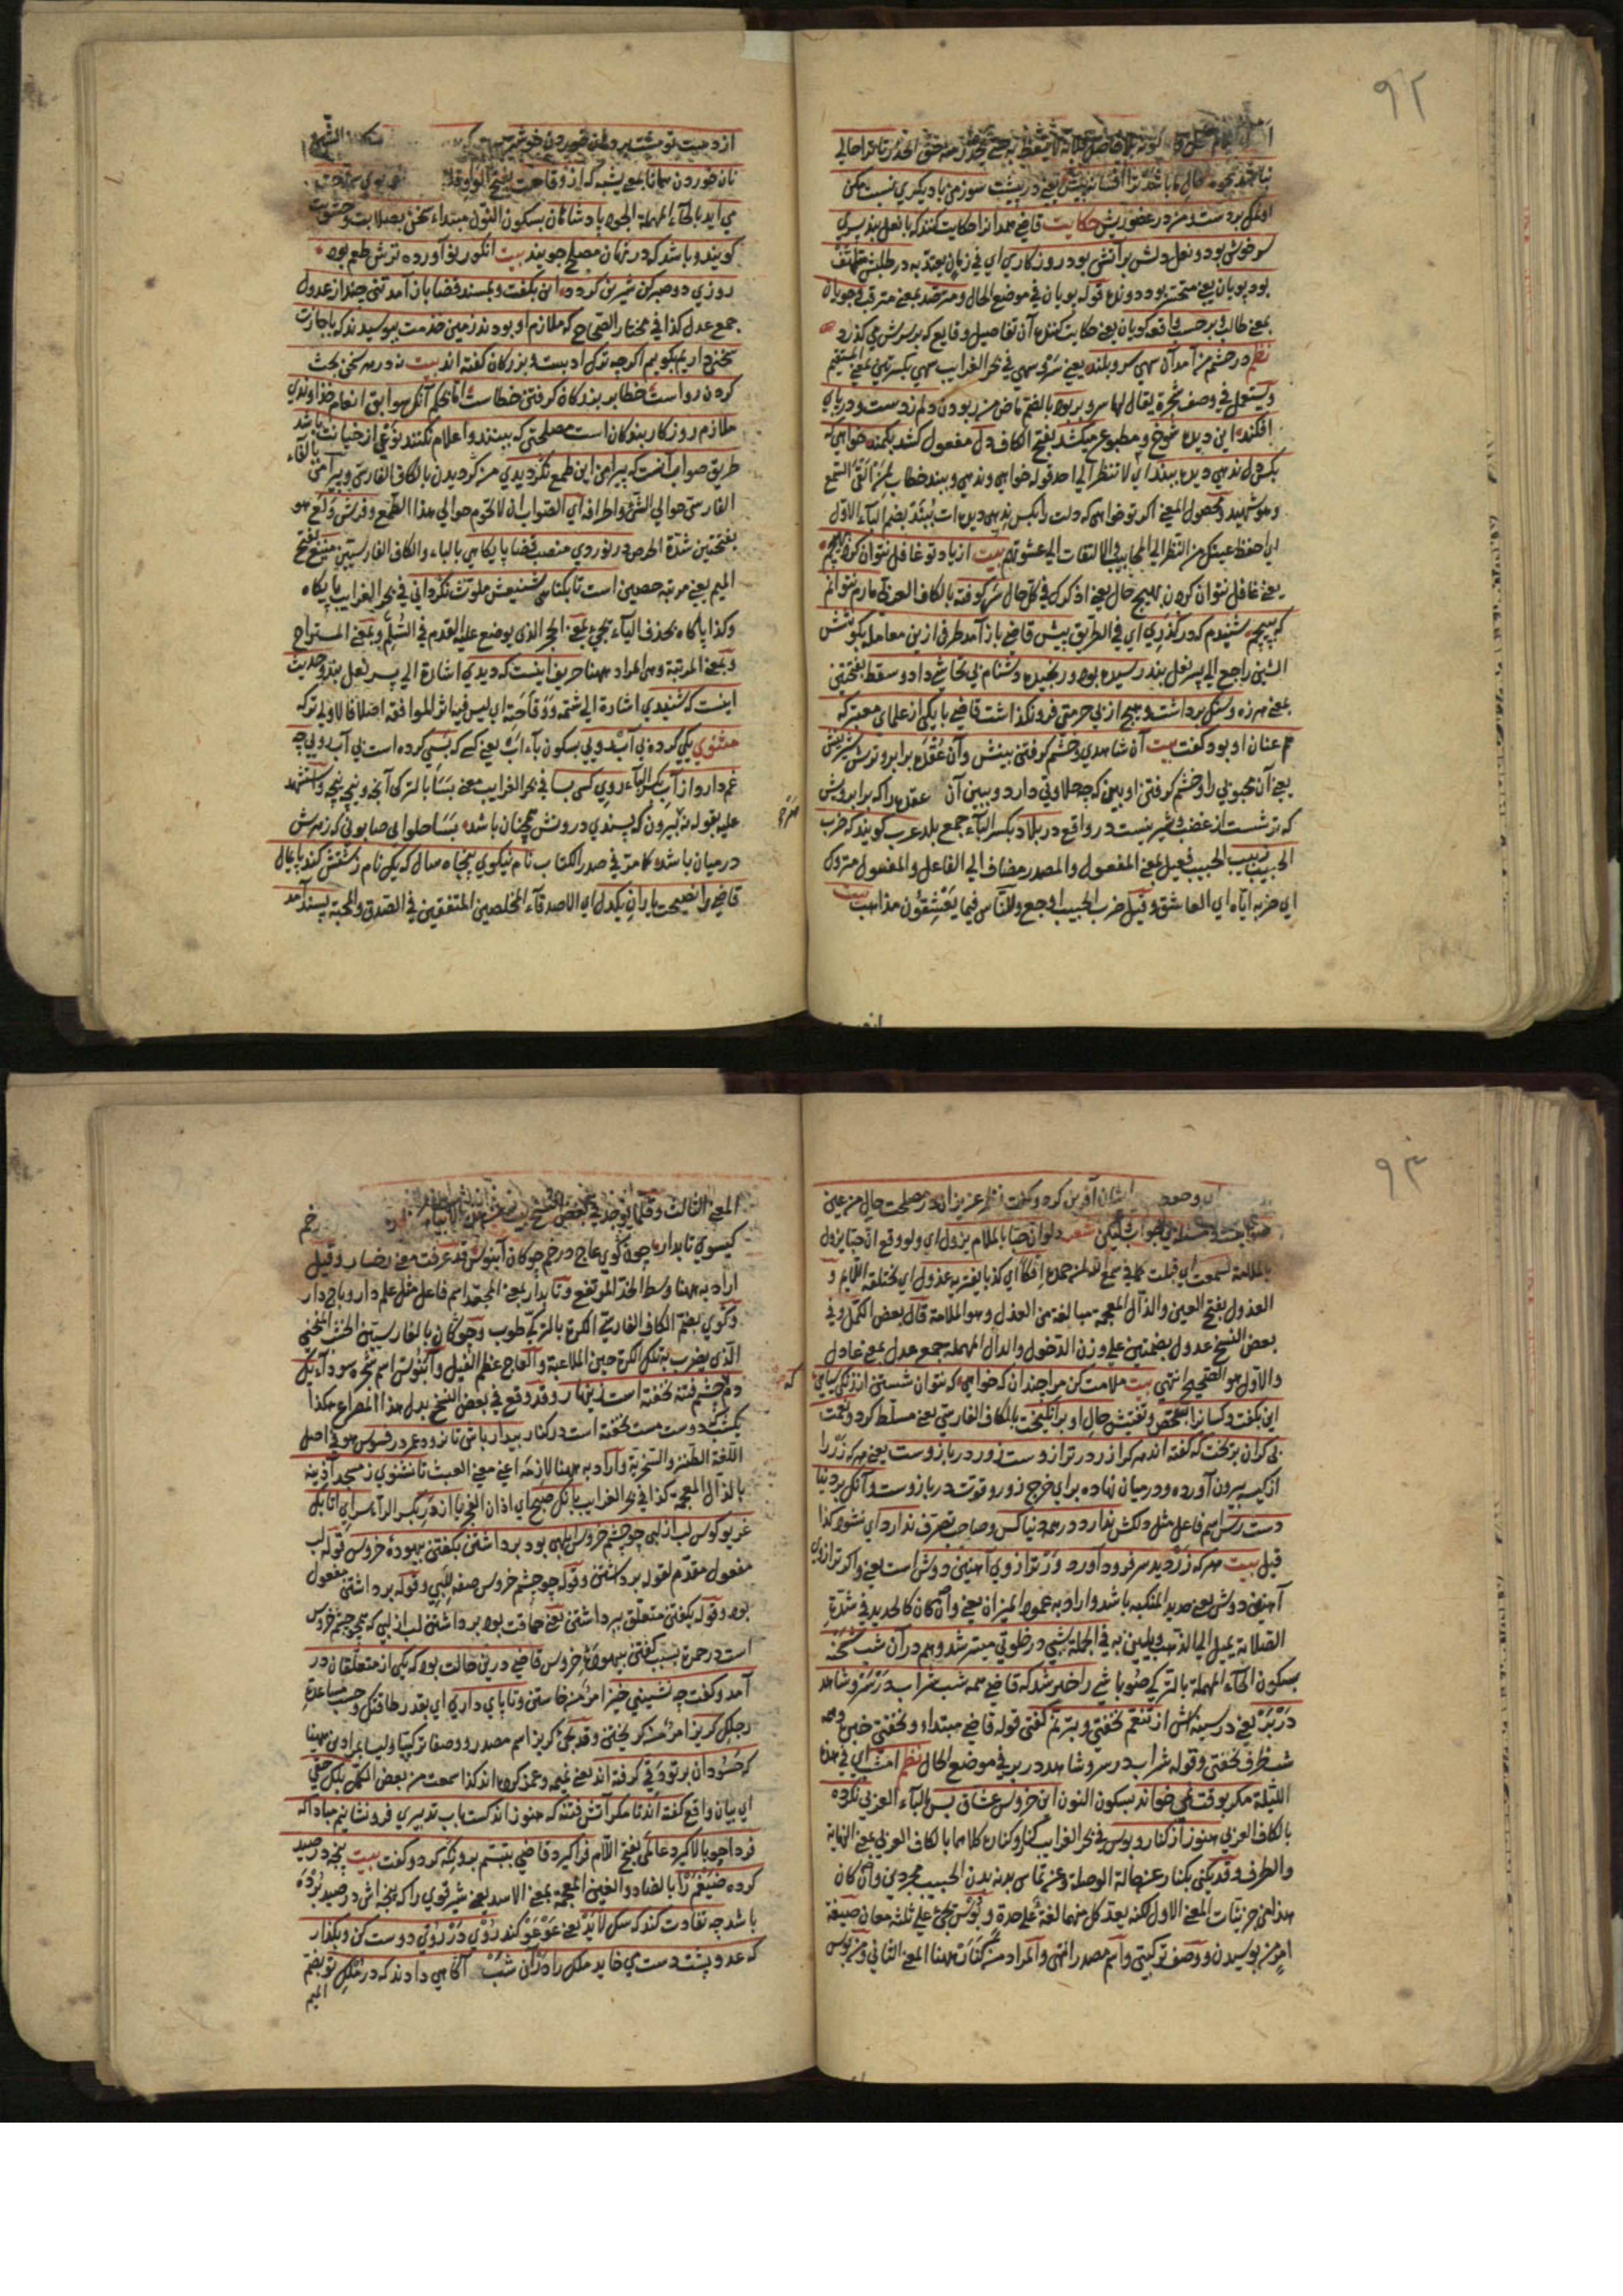 ٩٢
تا ترا حالي
نباشد همچو حال ما باشد ترا افسانه پيش يعني در پيشت سوز من با ديكري نسبت مكن
او نمك بر دست و من بر عضو ريش حكايت قاضي همدانرا حكايت كنند كه با نعل بند پسري
سر خوش بود و نعل دلش بر آتش بود روزكاري اي في زمان يعتد به در طلبش متلهف
بود پويان يعني متحسر بود و دونده قوله پويان في موضع الحال و مترصد بمعنى مترقب و جويان
بمعنى طالب و بر حسب واقعه كويان يعني حكايت كننده آن تفاصيل وقايع كه بر سرش مي كذرد
نظم در چشم من آمد آن سهي سرو بلند يعني سرو سهي في بحر الغرايب سهي بكسرتين بمعنى المستقيم
و يستعمل في وصف شجرة يقال لها سرو بربود بالضم ماض من ربودن دلم ز دست و در پاي
افكند اين ديده شوخ و مطبوع ميكشد بفتح الكاف دل مفعول كشد بكمند خواهي كه
بكس دل ندهي ديده ببند اي لا تنظر الى احد قوله خواهي و ندهي و ببند خطاب لمن القى السمع
وهو شهيد و محصول المعنى اكر تو خواهي كه دلت را بكس ندهي ديده ات ببند بضم الباء الاول
اي احفظ عينك من النظر الى المحابيب و الالتفات الى عشوتهم بيت از ياد تو غافل نتوان كرد بهيچم
يعني غافل نتوان كردن بهيچ حال يعني اذكرك في كل حال سر كوفته بالكاف العربي مارم نتوانم
كه بپيچم شنيدم كه در كذري اي في الطريق پيش قاضي باز آمد طرفي ازين معامله بكوشش
الشين راجع الى پسر نعل بند رسيده بود و رنجيده دشنام بي تحاشي داد و سقط بفتحتين
بمعنى هرزه و سنك برداشت و هيچ از بي حرمتي فرو نكذاشت قاضي با يكي از علماي معتبر كه
هم عنان او بود كفت بيت آن شاهدي و خشم كرفتن بينش وآن عقده برابرو ترش شيرينش
يعني آن محبوبي را و خشم كرفتن او بين كه چه حلاوتي دارد و ببين آن عقده را كه برابرويش
كه ترشست از غضب و شيرينست در واقع در بلاد بكسر الباء جمع بلد عرب كويند كه ضرب
الحبيب زبيب الحبيب فعيل بمعنى المفعول والمصدر مضاف الى الفاعل والمفعول متروك
اي ضربه اياه اي العاشق و قيل ضرب الحبيب اوجع وللناس فيما يعشقون مذاهب بيت
از دست تو مشت بر دهان خوردن خوشتر
نان خوردن همانا بمعنى يشبه كه از وقاحت بفتح الواو
مي آيد بالحاء المهملة الجوه پادشاهان بسكون النون مبتداء سخن بصلابت و خشونت
كويند و باشد كه در نهان مصلح جويند بيت انكور نو آورده ترش طعم بود
روزي دو صبر كن شيرين كردد اين بكفت و بمسند قضا باز آمد تني چند از عدول
جمع عدل كذا في مختار الصحاح كه ملازم او بودند زمين خدمت ببوسيدند كه باجازت
سخن داريم بكويم اكرچه ترك ادبست و بزركان كفته اند بيت نه در هر سخن بحث
كردن رواست خطا بر بندكان كرفتن خطاست اما بحكم آنكه سوابق انعام خداوندي
ملازم روزكار بندكان است مصلحتي كه بينند و اعلام نكنند نوعي از خيانت باشد
طريق صواب آنست كه پيرامن اين طمع نكرديدي من كرديدن بالكاف الفارسي و پيرامن بالباء
الفارسي حوالي الشئ و اطرافه اي الصواب ان لا تحوم حوالي هذا الطمع و فرش ولع هو
بفتحتين شدة الحرص در نوردي منصب قضا پايكاهي بالباء والكاف الفارسيتين منيع بفتح
الميم يعني مرتبه حصين است تا بكناهي شنيعش ملوث نكرداني في بحر الغرايب پايكاه
وكذا پاكاه بحذف الياء يجئ بمعنى الحجر الذي يوضع عليه القدم في السلم و بمعنى المستراح
و بمعنى المرتبة وهو المراد ههنا حريف اينست كه ديدي اشارة الى پسر نعل بند و حديث
اينست كه شنيدي اشارة الى شتمه و وقاحته اي ليس فيه اثر الموافقه اصلا فالاولى تركه
مثنوي يكي كرده بي آب رويي بسكون باء آب يعني كسي كه بسي كرده است بي آب رويي چه
غم دارد از آب بكسر الباء روي كسي بسا في بحر الغرايب معنى بسا بالتركي
عليه بقوله
در ميان باشد كما مر في صدر الكتاب نام نيكوي پنجاه سال كه يك نام زشتش كند پايمال
قاضي را نصيحت ياران يكدل اي الاصدقاء المخلصين المتفقين في الصدق والمحبة پسند آمد
٩٣
ايشان آفرين كرد و كفت نظر عزيزان در مصلحت حال من عين
صوابست و مسئله بي جواب ليكن شعر ولو ان حبا بالملام يزول اي ولو وقع ان حبا يزول
بالملامة لسمعت اي قبلت كما في سمع الله لمن حمده افكا اي كذبا يفتريه عذول اي يختلقه اللايم و
العذول بفتح العين والذال المعجمة مبالغة من العذل وهو الملامة قال بعض الكمل و في
بعض النسخ عدول بضمتين على وزن الدخول والدال المهملة جمع عدل بمعنى عادل
والاول هو الصحيح انتهى بيت ملامت كن مرا چندان كه خواهي كه نتوان شستن از زنكي سياهي
اين بكفت و كسانرا بتفحص و تفتيش حال او برانكيخت بالكاف الفارسي يعني مسلط كرد و نعمت
بي كران بريخت كه كفته اند هر كرا زر در ترازوست زور در بازوست يعني هر كه زر را
از كيسه بيرون آورده و در ميان نهاده براي خرج زور و قوت در بازوست وآنكه بر دنيا
دست رس اسم فاعل مثل دلكش ندارد در همه دنيا كس و صاحب تصرف ندارد اي نشود كذا
قيل بيت هر كه زر ديد سر فرود آورد ور ترازوي آهنين دوش است يعني و اكر ترازوي
آهنين دوش يعني حديد المنكب باشد و اراد به عمود الميزان يعني وان كان كالحديد في شدة
الصلابة يميل الى الذهب ويلين به في الجملة شبي در خلوتي ميسر شد و هم در آن شب شحنه
بسكون الحاء المهملة بالتركي صوباشي را خبر شد كه قاضي همه شب شراب در سر و شاهد
در بر يعني در سينه اش از تنعم نخفتي و بترنم كفتي قوله قاضي مبتداء و نخفتي خبره و همه
شب ظرف نخفتي و قوله شراب در سر و شاهد در بر في موضع الحال نظم امشب اي في هذه
الليلة مكر بوقت نمي خواند بسكون النون اين خروس عشاق بس بالباء العربي نكرده
بالكاف العربي هنوز از كنار و بوس في بحر الغرايب كنار و كناره كلاهما بالكاف العربي بمعنى النهاية
والطرف و قد يكنى بكنار عن حالة الوصلة و عن تماس بدنه بدن الحبيب مجردين وان كان
هذا من جزئيات المعنى الاول لكنه يعد كل منهما لغة على حدة و بوس يجئ على ثلثة معان صيغة
امر من بوسيدن و وصف تركيبي و اسم مصدر انتهى والمراد من كنار ههنا المعنى الثاني و من بوس
المعنى الثالث و قلما يوجد في بعض النسخ بيت
كيسوي تابدار چون كوي عاج در خم چوكان آبنوس قد عرفت معنى رخسار و قيل
اراد به ههنا وسط الخد المرتفع و تابدار بمعنى المجعد اسم فاعل مثل علم دار و باج دار
و كوي بضم الكاف الفارسي الكرة بالتركي طوب و چوكان بالفارسيتين الخشب المنحني
الذي يضرب به تلك الكرة حين الملاعبة والعاج عظم الفيل و آبنوس اسم شجر سود آ يك
دم كه چشم فتنه نخفته است زينهار و قد وقع في بعض النسخ بدل هذا المصراع هكذا
يكشب كه دوست مست نخفته است در كنار بيدار باش تا نرود عمر در فسوس هو في اصل
اللغة الطنز والسخرية و اراد به ههنا لازمه اعني معنى العبث تا نشنوي ز مسجد آذينه
بالذال المعجمة كذا في بحر الغرايب بانك صبح اي اذان الفجر يا از در بكسر الراء سراي اتابك
غريو كوس لب از لبي چو چشم خروس ابلهي بود برداشتن بكفتن بيهوده خروس قوله لب
مفعول مقدم لقوله برداشتن و قوله چو چشم خروس صفة للبي و قوله برداشتن مفعول
بود و قوله بكفتن متعلق ببرداشتن يعني حماقت بود برداشتن لب از لبي كه همچو چشم خروس
است در حمرة بسبب كفتن بيهوده خروس قاضي درين حالت بود كه يكي از متعلقان در
آمد و كفت چه نشيني خيز امر من خاستن و تا پاي داري اي بقدر طاقتك و حسب مساعدة
رجلك كريز امر من كريختن و قد يجئ كريز اسم مصدر و وصفا تركيبيا وليسا بمرادين ههنا
كه حسودان بر تو دقي كرفته اند يعني غيبه و غمز كرده اند كذا سمعت من بعض الكمل بلكه حقي
اي بيان واقع كفته اند تا مكر آتش فتنه كه هنوز اندكست بآب تدبيري فرو نشانيم مبادا كه
فردا چو بالا كيرد عالمي بفتح اللام فرا كيرد قاضي بتبسم بدو نكه كرد و كفت بيت پنجه در صيد
كرده ضيغم را بالضاد والغين المعجمة بمعنى الاسد يعني شير قوي را كه پنجه اش در صيد برده
باشد چه تفاوت كند كه سك لايد يعني عو عو كند روي در روي دوست كن و بكذار
كه عدو پشت دست مي خايد ملك را در آن شب آكاهي دادند كه در ملك تو بضم
الميم